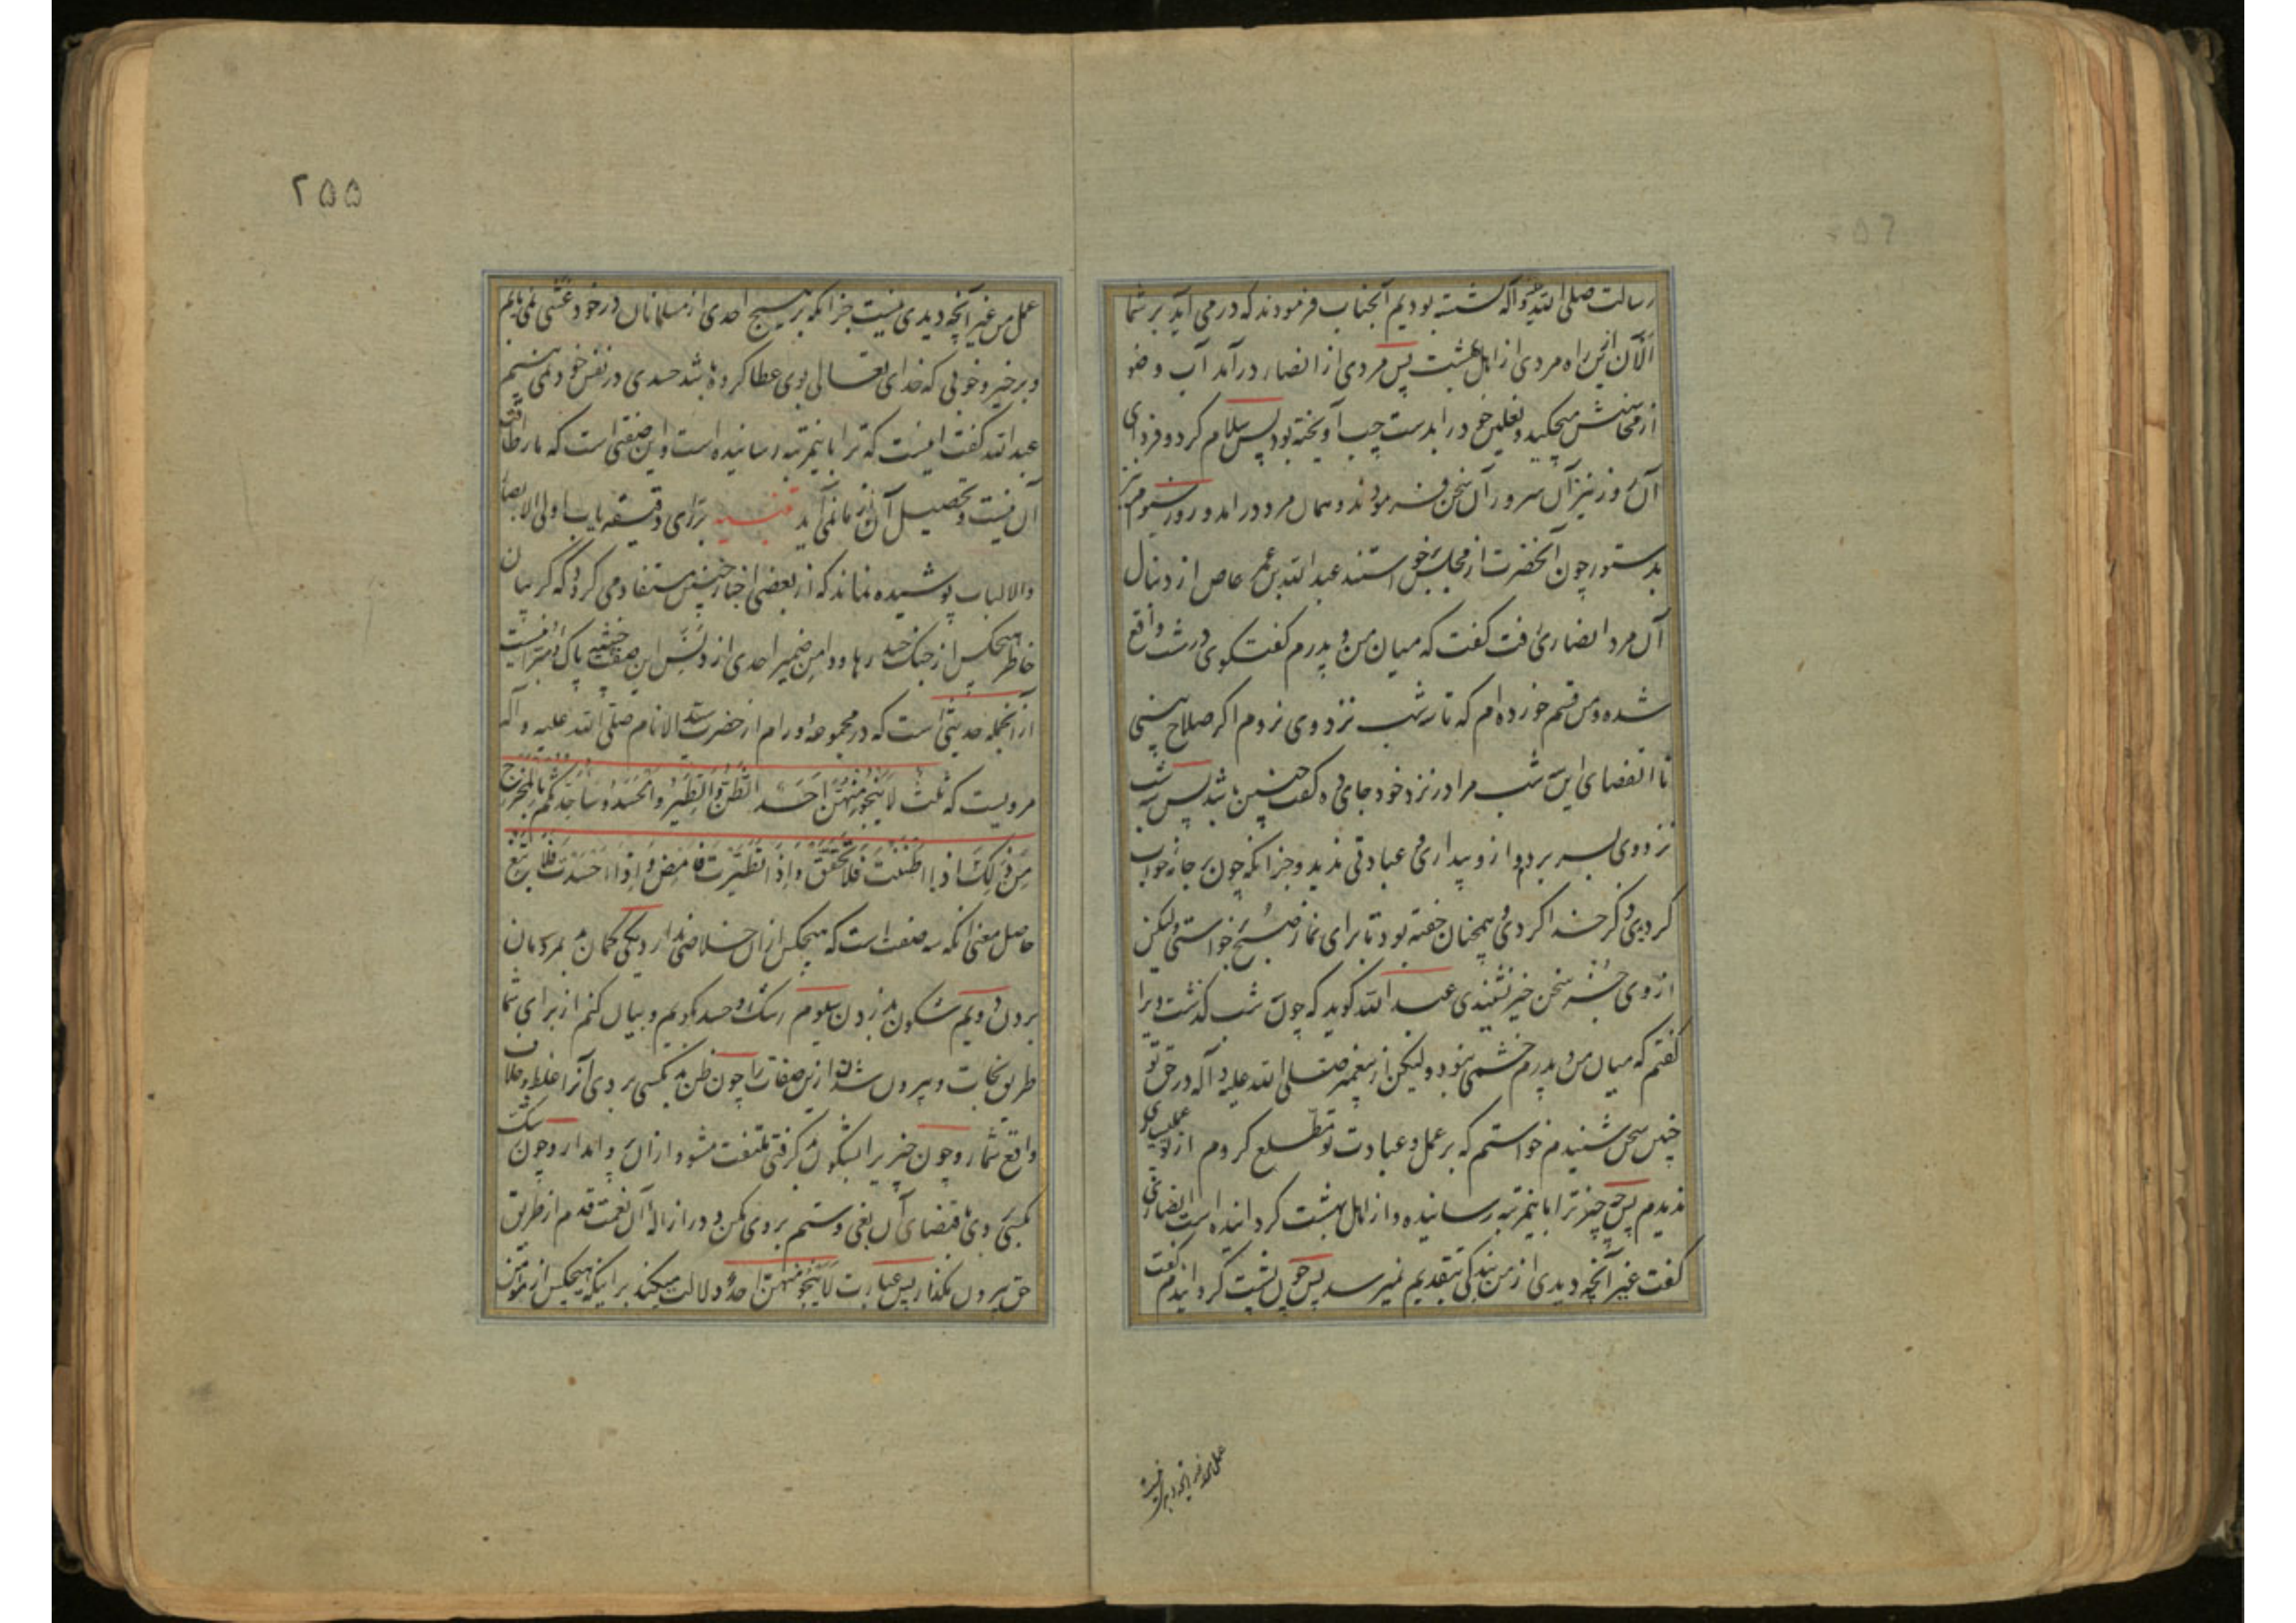 رسالت صلی الله علیه وآله نشسته بودیم آنجناب فرمودند که در می آید بر شما
الآن ازین راه مردی از اهل بهشت پس مردی از انصار درآمد آب وضو
از محاسنش میچکید و نعلین خود را بدست چپ آویخته بود پس سلام کرد و فردای
آن روز نیز آن سرور آن سخن فرمودند و همان مرد درآمد و روز سیوم نیز
بدستور چون آنحضرت از مجلس برخواستند عبدالله بن عمرو عاص از دنبال
آن مرد انصاری رفت گفت که میان من و پدرم گفتگوی درشت واقع
شده و من قسم خورده ام که تا سه شب نزد وی نروم اگر صلاح بینی
تا انقضای این سه شب مرا در نزد خود جای ده گفت چنین باشد پس سه شب
نزد وی بسر برد و از و بیداری و عبادتی ندید و جز آنکه چون بر جامه خواب
کردیدی ذکر خدا کردی و همچنان خفته بود تا برای نماز صبح برخواستی ولیکن
از وی جز سخن خیر نشنیدی عبدالله گوید که چون سه شب گذشت ویرا
گفتم که میان من و پدرم خشمی نبود ولیکن از پیغمبر صلی الله علیه وآله در حق تو
چنین سخن شنیدم خواستم که بر عمل و عبادت تو مطلع کردم از تو عملی
ندیدم پس چه چیز ترا باینمرتبه رسانیده و از اهل بهشت کردانیده است انصاری
گفت غیر آنچه دیدی از من بندگی بتقدیم نمیرسد پس چون پشت کردانیدم گفت
عمل من غیر آنچه دیدی نیست
۲۵۵
عمل من غیر آنچه دیدی نیست جز آنکه بر هیچ احدی از مسلمانان در خود غشی نمی یابم
و بر خیر و خوبی که خدای تعالی بوی عطا کرده باشد حسدی در نفس خود نمی بینم
عبدالله گفت اینست که ترا باینمرتبه رسانیده است و این صفتی است که ما را طاقت
آن نیست و تحصیل آن از ما نمی آید تنبیه بر رای دقیقه یاب اولی الابصار
والالباب پوشیده نماند که از بعضی اخبار چنین مستفاد می کردد که کریبان
خاطر هیچکس از چنک حسد رها و دامن ضمیر احدی از دنس این صفت خبیثه پاک و مبرا نیست
از آنجمله حدیثی است که در مجموعه ورام از حضرت سید الانام صلی الله علیه وآله
مرویست که ثلث لا ینجو منهن احد الظن والطیر والحسد وساحدثکم بالمخرج
من ذلک اذا ظننت فلا تحقق واذا تطیرت فامض واذا حسدت فلا تبغ
حاصل معنی آنکه سه صفت است که هیچکس از آن خلاصی ندارد یکی کمان بد بمردمان
بردن دویم شکون بد زدن سیوم رشک و حسد بردیم و بیان کنم از برای شما
طریق نجات و بیرون شدن ازین صفات را چون ظن بد بکسی بردی آنرا غلط و خلاف
واقع شمار و چون چیزیرا بشکون بد کرفتی ملتفت مشو و از آن پروا مدار و چون رشک
بکسی بردی بمقتضای آن بغی و ستم بر وی مکن و در ازاله آن نعمت قدم از طریق
حق بیرون مگذار پس عبارت لا ینجو منهن احد دلالت میکند بر اینکه هیچکس از مؤمن